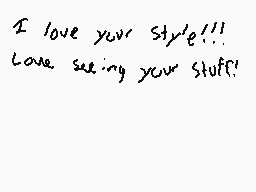 I love your style!!!
Love seeing your stuff!